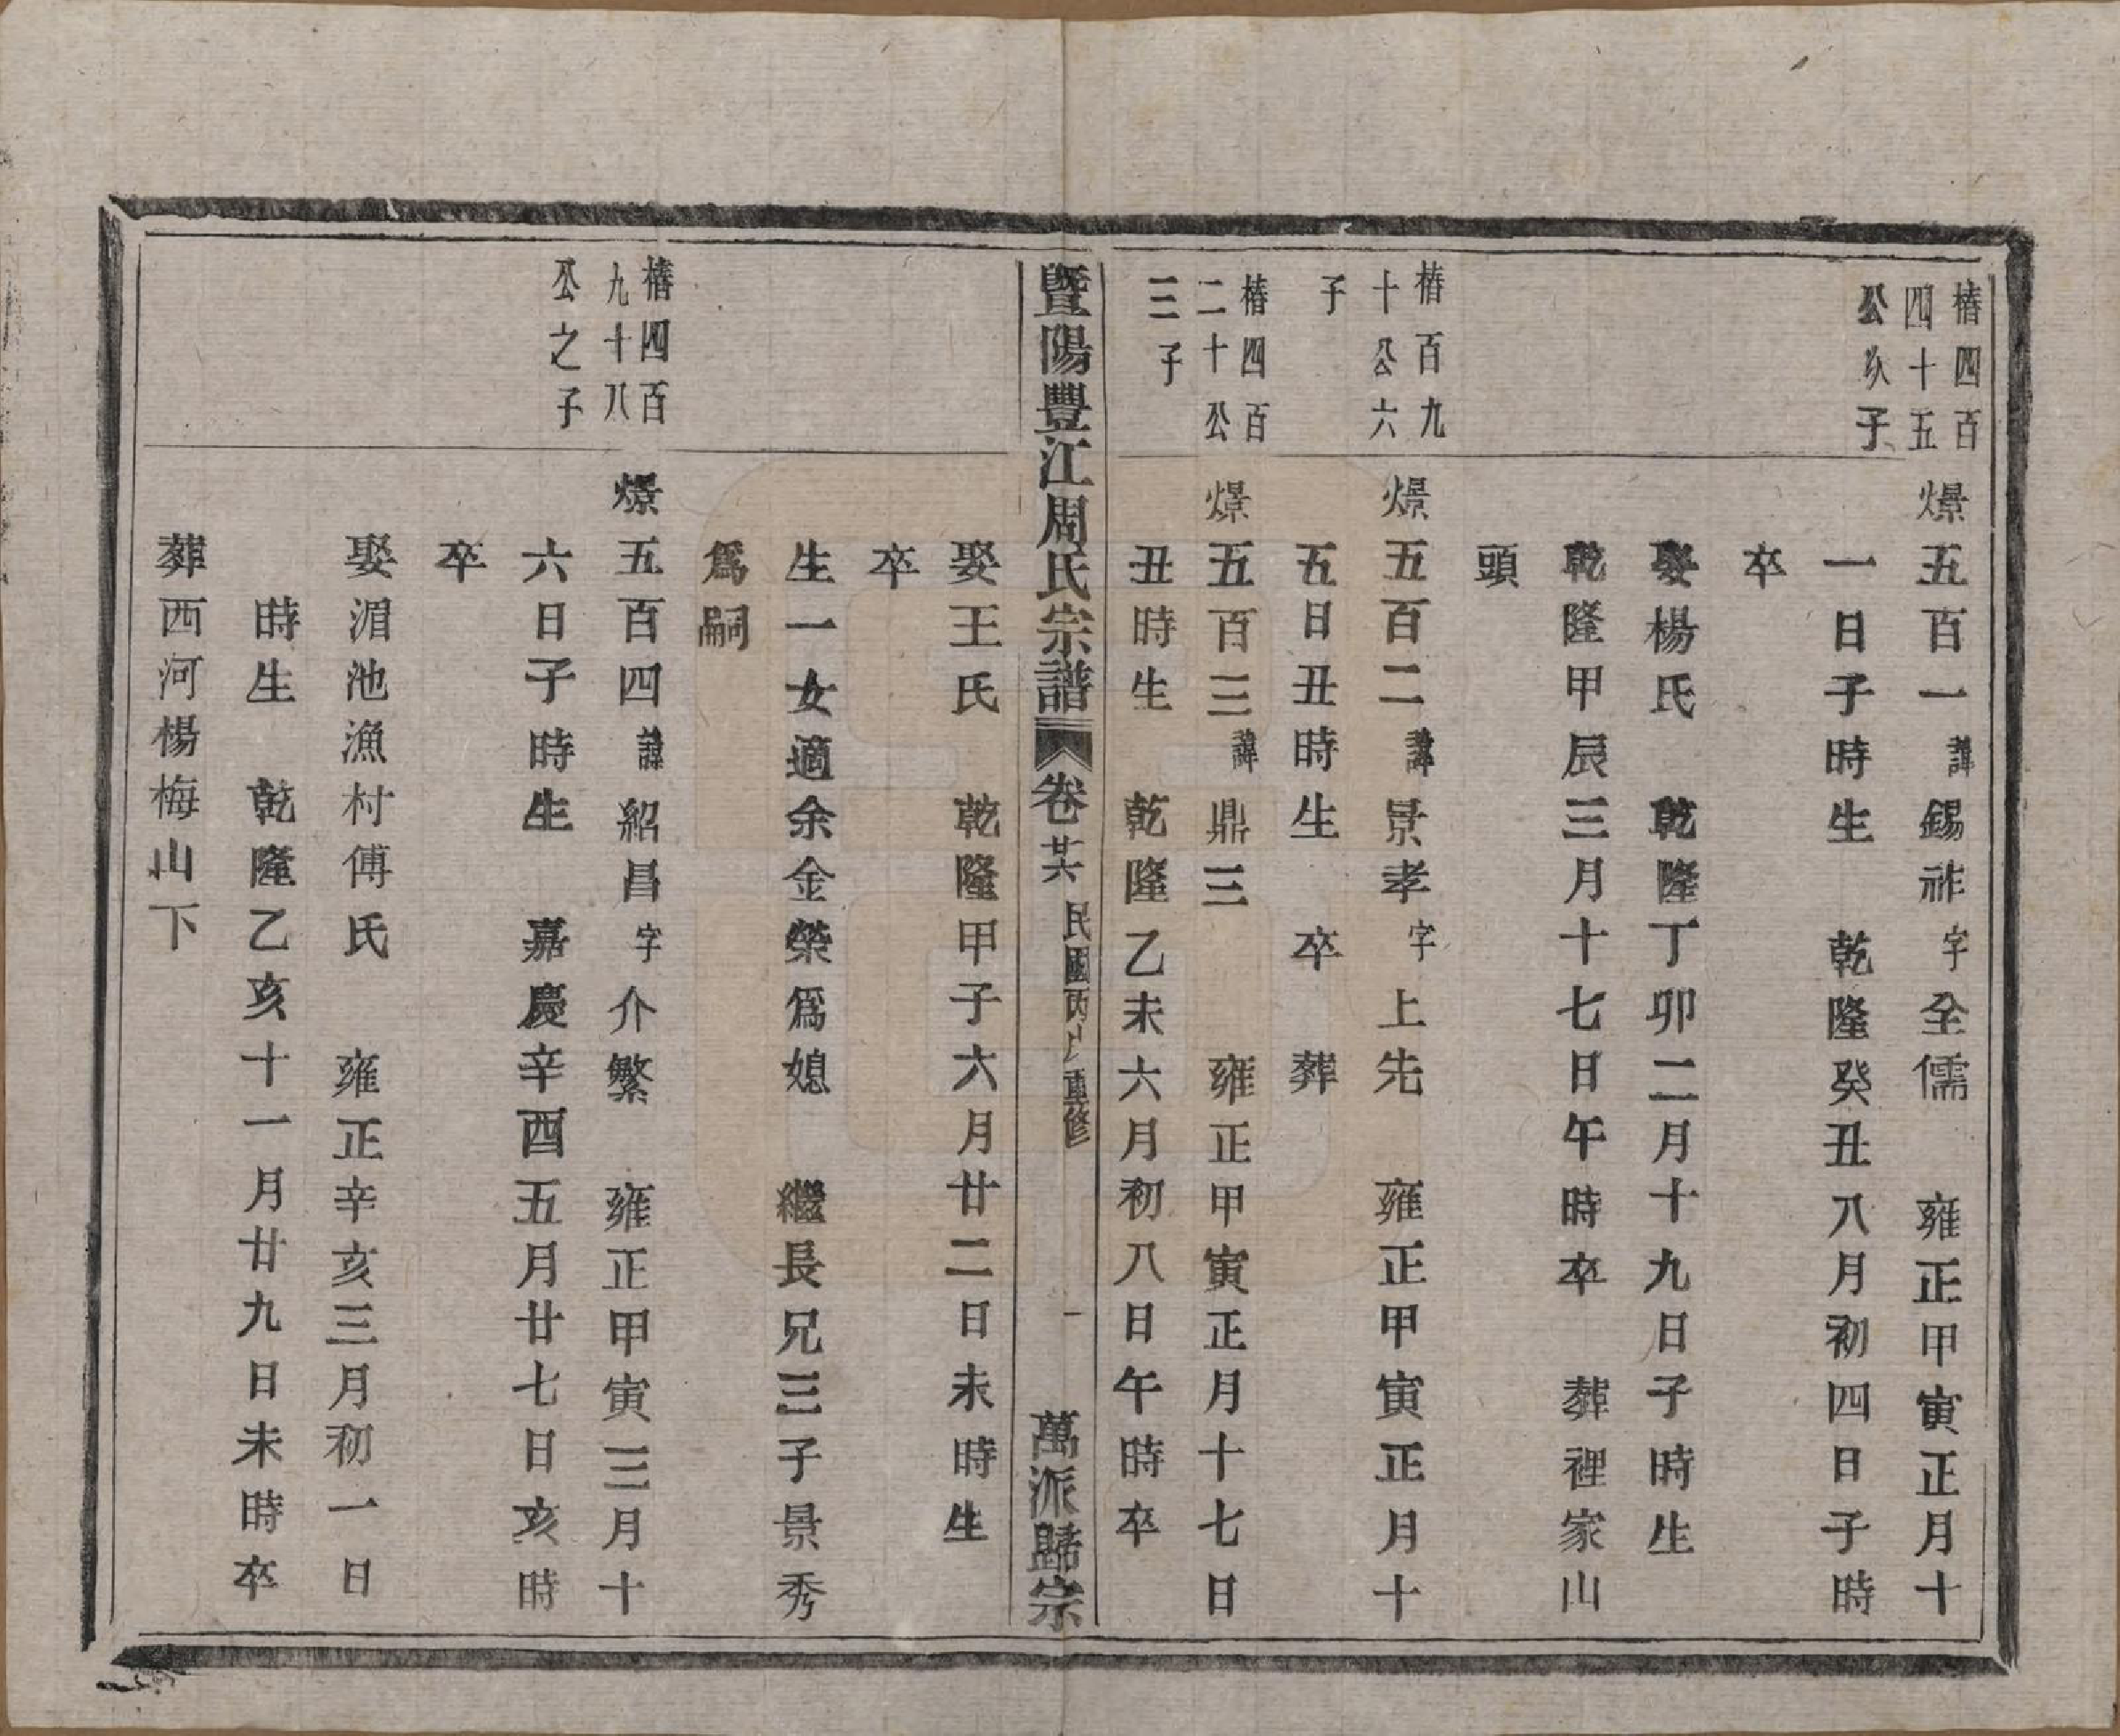 椿四百
四十五
公次子
燝五百一諱錫祚字全儒　雍正甲寅正月十
一日子時生　乾隆癸丑八月初四日子時
卒
娶楊氏　乾隆丁卯二月十九日子時生
乾隆甲辰三月十七日午時卒　葬裡家山
頭
椿百九
十公六
子
燝五百二諱景孝字上先　雍正甲寅正月十
五日丑時生　卒　葬
椿四百
二十公
三子
燝五百三諱鼎三　雍正甲寅正月十七日
丑時生　乾隆乙未六月初八日午時卒
暨陽豐江周氏宗譜　卷廿六　民國丙戌重修　一　萬派歸宗
娶王氏　乾隆甲子六月廿二日未時生
卒
生一女適余金榮爲媳　繼長兄三子景秀
爲嗣
椿四百
九十八
公之子
燝五百四諱紹昌字介繁　雍正甲寅三月十
六日子時生　嘉慶辛酉五月廿七日亥時
卒
娶湄池漁村傅氏　雍正辛亥三月初一日
時生　乾隆乙亥十一月廿九日未時卒
葬西河楊梅山下